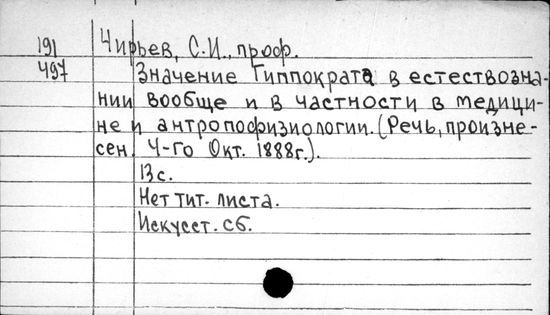 191 Чирьев, С.И., проф.
497 Значение Гиппократа в естествозна-
нии вообще и в частности в медици-
не и антропофизиологии. (Речь, произне-
сен. 4-го Окт. 1888г.).
13 с.
Нет тит. листа.
Искусст. сб.